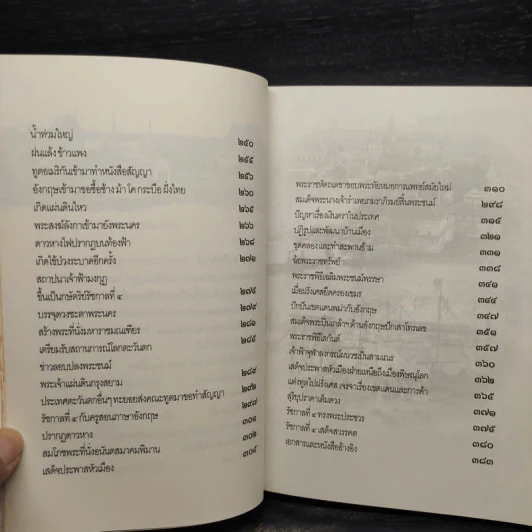 น้ำท่วมใหญ่ ๒๕๐
ฝนแล้ง ข้าวแพง ๒๕๕
ทูตอเมริกันเข้ามาทำหนังสือสัญญา ๒๕๖
อังกฤษเข้ามาขอซื้อช้าง ม้า โค กระบือ ฝั่งไทย ๒๖๐
เกิดแผ่นดินไหว ๒๖๕
พระสงฆ์ลังกาเข้ามายังพระนคร ๒๖๖
ดาวหางไฟปรากฏบนท้องฟ้า ๒๖๘
เกิดไข้ป่วงระบาดอีกครั้ง ๒๗๑
สถาปนาเจ้าฟ้ามงกุฎ
ขึ้นเป็นกษัตริย์รัชกาลที่ ๔ ๒๗๕
บรรจุดวงชะตาพระนคร ๒๗๙
สร้างพระที่นั่งมหาราชมณเฑียร ๒๘๑
เตรียมรับสถานการณ์โลกตะวันตก ๒๘๕
ข่าวลอบปลงพระชนม์
พระเจ้าแผ่นดินกรุงสยาม ๒๘๙
ประเทศตะวันตกอื่นๆ ทะยอยส่งคณะทูตมาขอทำสัญญา ๒๙๒
รัชกาลที่ ๔ กับครูสอนภาษาอังกฤษ ๒๙๔
ปรากฏดาวหาง ๓๐๑
สมโภชพระที่นั่งอนันตสมาคมพิมาน ๓๐๒
เสด็จประพาสหัวเมือง ๓๐๔
พระราชหัตถเลขาขอบพระทัยหมอการแพทย์สมัยใหม่ ๓๑๐
สมเด็จพระนางเจ้ารำเพยภมราภิรมย์สิ้นพระชนม์ ๒๙๘
ปัญหาเรื่องเงินตราในประเทศ ๓๑๕
ปฏิรูปและพัฒนาบ้านเมือง ๓๒๑
ขุดคลองและทำสะพานข้าม ๓๓๑
ฉ้อพระราชทรัพย์ ๓๓๘
พระราชพิธีเฉลิมพระชนม์พรรษา
เมื่อฝรั่งเศสยึดครองเขมร ๓๔๔
ปักปันเขตแดนพม่ากับอังกฤษ ๓๔๗
สมเด็จพระปิ่นเกล้าฯ ด้านอังกฤษปักเสาโทรเลข ๓๕๑
พระราชพิธีโสกันต์ ๓๕๗
เจ้าฟ้าจุฬาลงกรณ์ผนวชเป็นสามเณร ๓๖๐
เสด็จประพาสหัวเมืองฝ่ายเหนือถึงเมืองพิษณุโลก ๓๖๒
แต่งทูตไปฝรั่งเศส เจรจาเรื่องเขตแดนและการค้า ๓๖๕
สุริยุปราคาเต็มดวง ๓๗๑
รัชกาลที่ ๔ ทรงพระประชวร ๓๗๕
รัชกาลที่ ๔ เสด็จสวรรคต ๓๘๐
เอกสารและหนังสืออ้างอิง ๓๘๓